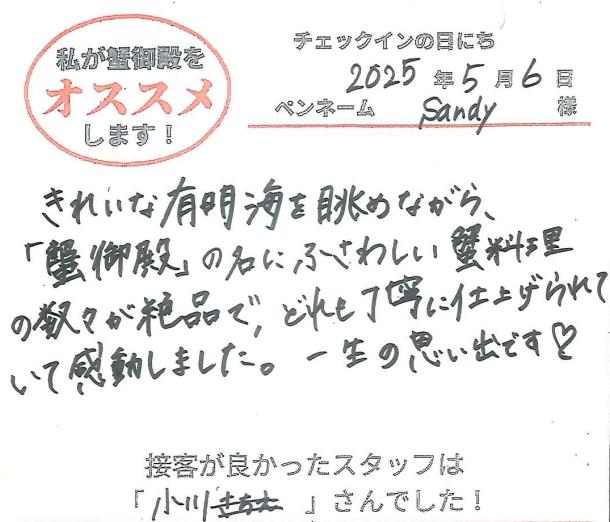 私が蟹御殿を
オススメ
します！
チェックインの日にち
2025年5月6日
ペンネーム Sandy 様
きれいな有明海を眺めながら、
「蟹御殿」の名にふさわしい蟹料理
の数々が絶品で、どれも丁寧に仕上げられて
いて感動しました。一生の思い出です♡
接客が良かったスタッフは
「小川 」さんでした！